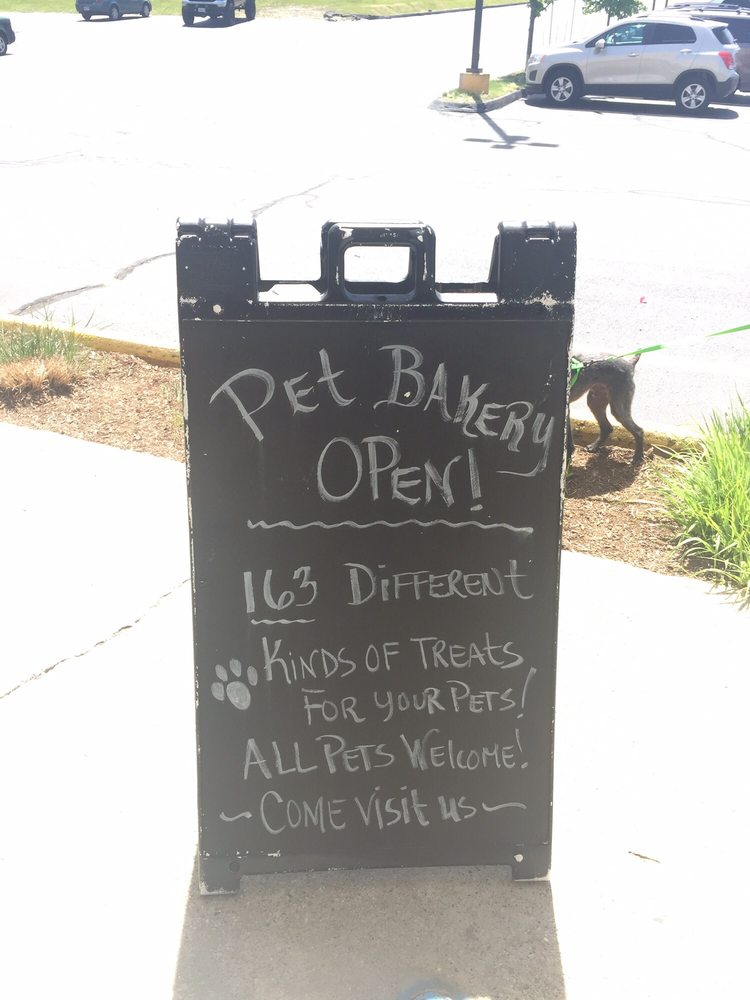 Pet Bakery
Open!
163 Different
Kinds of Treats
For your Pets!
All Pets Welcome!
~ Come visit us ~